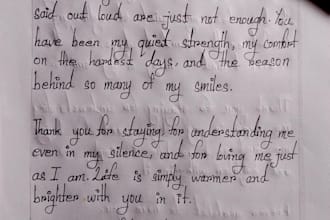 said out loud are just not enough. You
have been my quiet strength, my comfort
on the hardest days, and the reason
behind so many of my smiles.
Thank you for staying, for understanding me
even in my silence, and for loving me just
as I am. Life is simply warmer and
brighter with you in it.